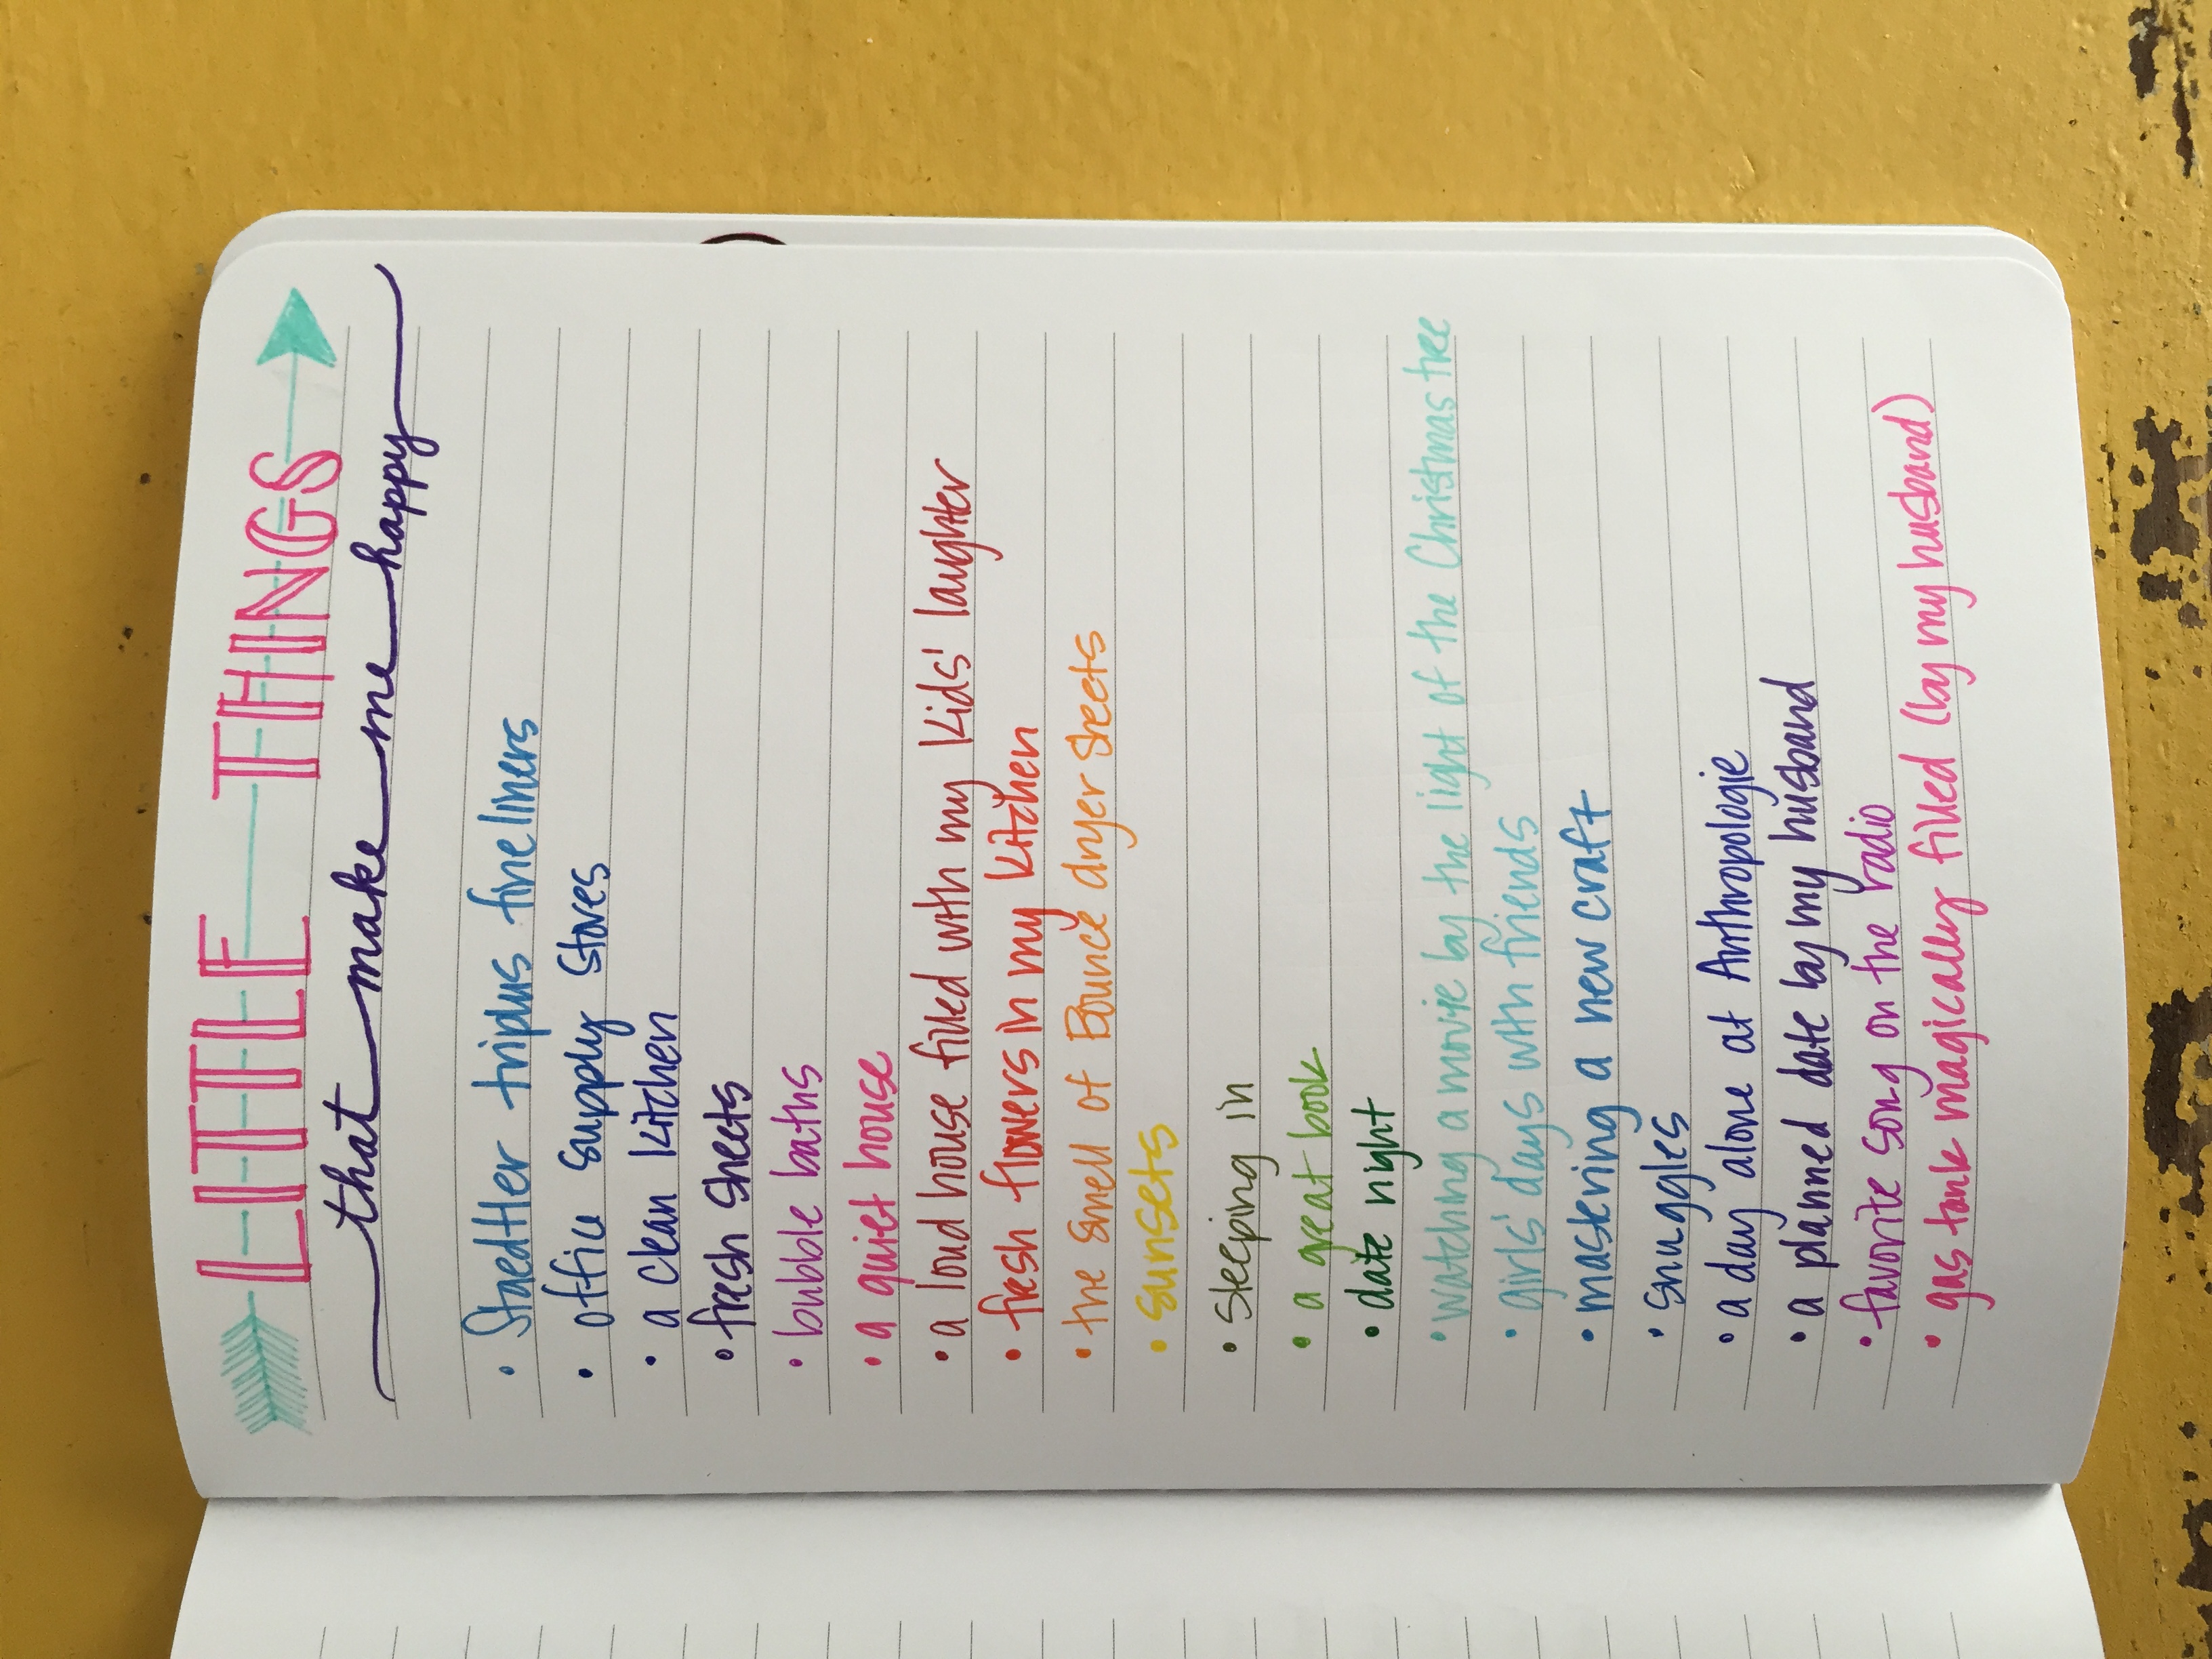 LITTLE THINGS
that make me happy
• Staedtler triplus fineliners
• office supply stores
• a clean kitchen
• fresh sheets
• bubble baths
• a quiet house
• a loud house filled with my kids' laughter
• fresh flowers in my kitchen
• the smell of Bounce dryer sheets
• sunsets
• sleeping in
• a great book
• date night
• watching a movie by the light of the Christmas tree
• girls' days with friends
• mastering a new craft
• snuggles
• a day alone at Anthropologie
• a planned date by my husband
• favorite song on the radio
• gas tank magically filled (by my husband)